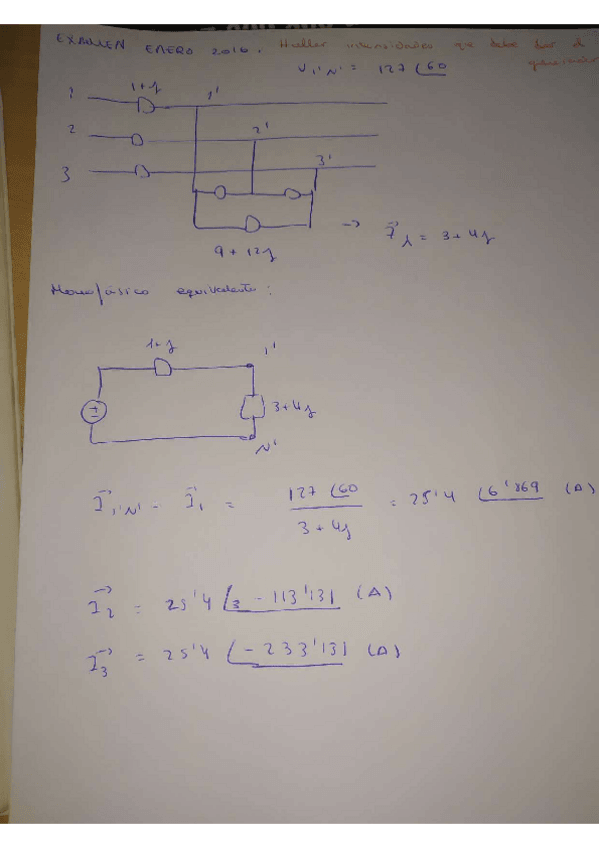 EXAMEN ENERO 2016. Hallar intensidades que debe dar el generador
V1'N' = 127 ∠60
1+j
1 1'
2 2'
3 3'
9 + 12j → Zλ = 3 + 4j
Monofásico equivalente:
1+j
1'
3+4j
N'
I1'N' = I1 = 127 ∠60 / 3 + 4j = 25'4 ∠6'869 (A)
I2 = 25'4 ∠ - 113'131 (A)
I3 = 25'4 ∠-233'131 (A)